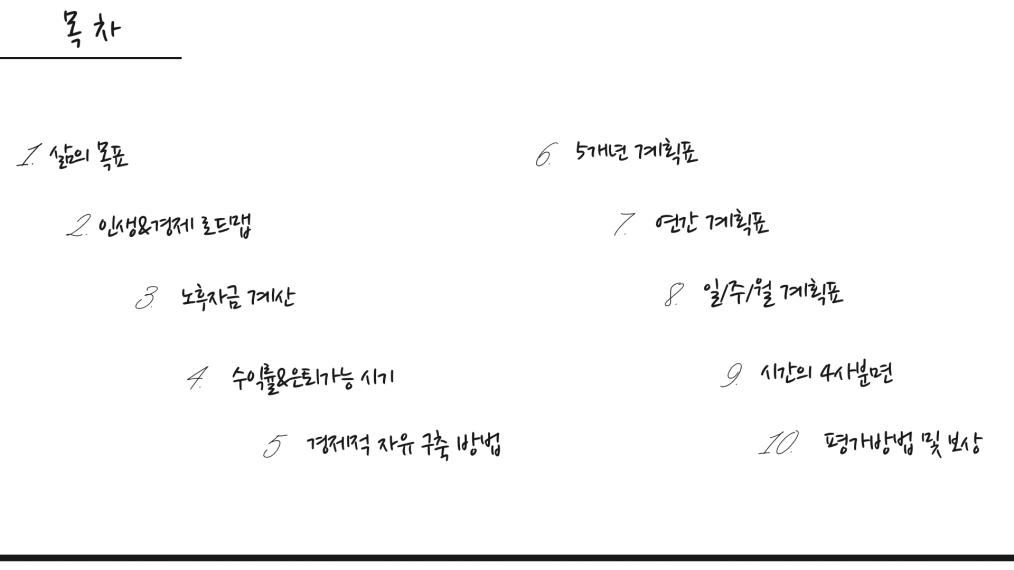 목차
1. 삶의 목표
2. 인생&경제 로드맵
3. 노후자금 계산
4. 수익률&은퇴가능 시기
5 경제적 자유 구축 방법
6. 5개년 계획표
7. 연간 계획표
8. 일/주/월 계획표
9. 시간의 4사분면
10. 평가방법 및 보상